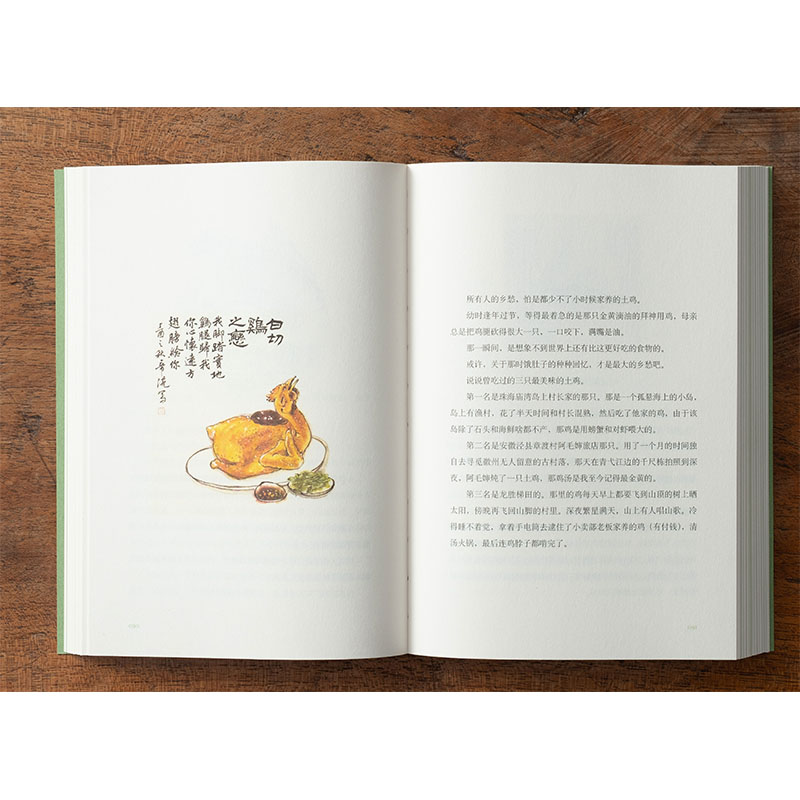 白切
鷄
之戀
我脚踏實地
鷄腿歸我
你心懷遠方
翅膀給你
所有人的乡愁，怕是都少不了小时候家养的土鸡。
幼时逢年过节，等得最着急的是那只金黄滴油的拜神用鸡，母亲
总是把鸡腿砍得很大一只，一口咬下，满嘴是油。
那一瞬间，是想象不到世界上还有比这更好吃的食物的。
或许，关于那时饿肚子的种种回忆，才是最大的乡愁吧。
说说曾吃过的三只最美味的土鸡。
第一名是珠海庙湾岛上村长家的那只。那是一个孤悬海上的小岛，
岛上有渔村，花了半天时间和村长混熟，然后吃了他家的鸡，由于该
岛除了石头和海鲜啥都不产，那鸡是用螃蟹和对虾喂大的。
第二名是安徽泾县章渡村阿毛婶旅店那只。用了一个月的时间独
自去寻觅徽州无人留意的古村落，那天在青弋江边的千尺栋拍照到深
夜，阿毛婶炖了一只土鸡，那鸡汤是我至今记得最金黄的。
第三名是龙胜梯田的。那里的鸡每天早上都要飞到山顶的树上晒
太阳，傍晚再飞回山脚的村里。深夜繁星满天，山上有人唱山歌。冷
得睡不着觉，拿着手电筒去逮住了小卖部老板家养的鸡（有付钱），清
汤火锅，最后连鸡脖子都啃完了。